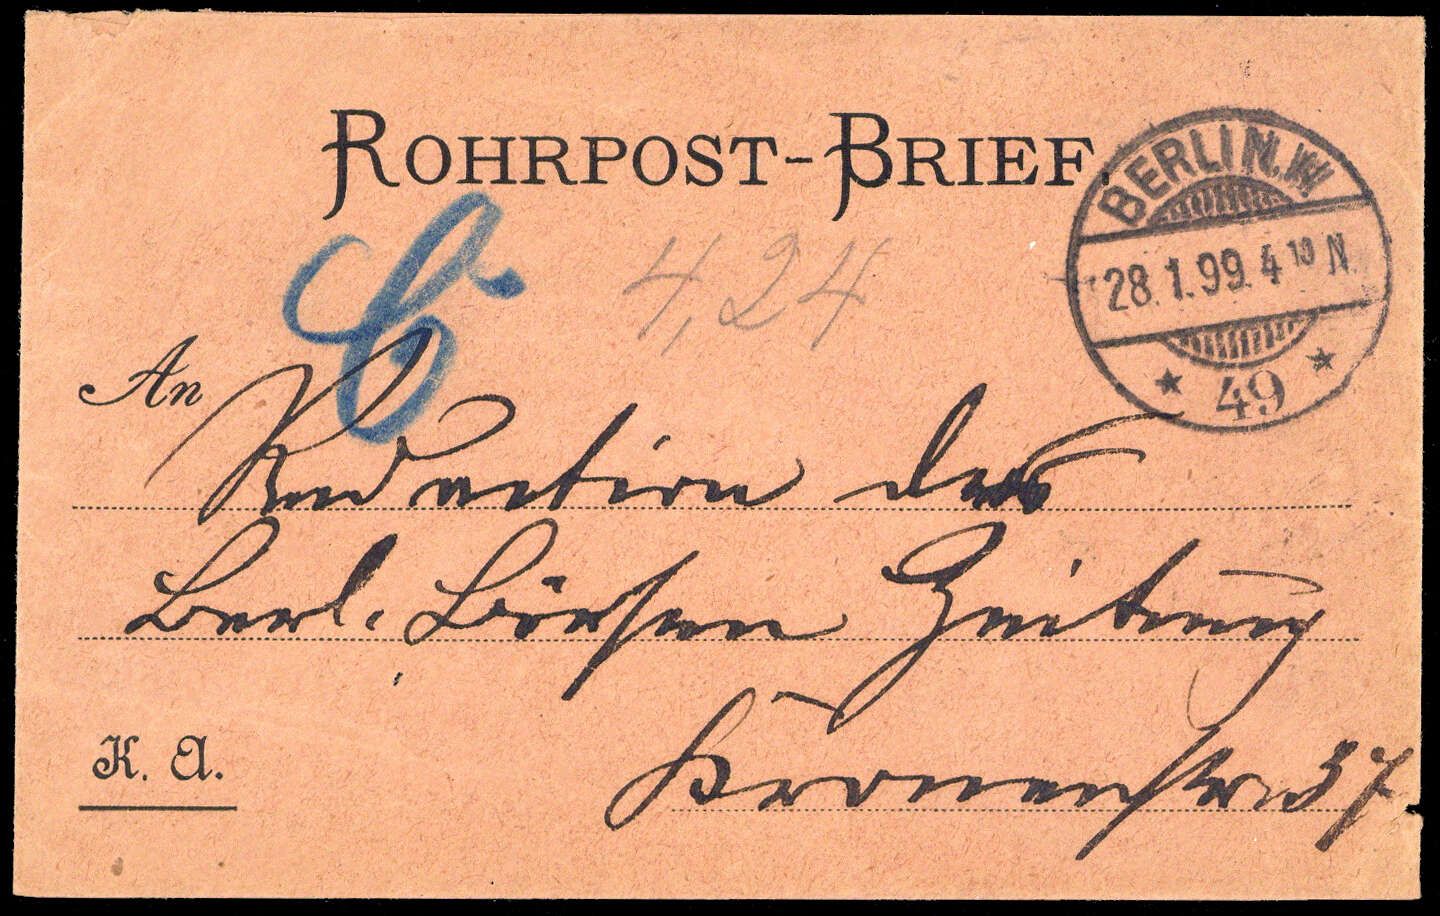 ROHRPOST-BRIEF.
BERLIN N.W.
28.1.99. 4 10 N.
* 49 *
4,24
An Redaction der
Berl. Börsen Zeitung
K. A.
Kronenstr 37